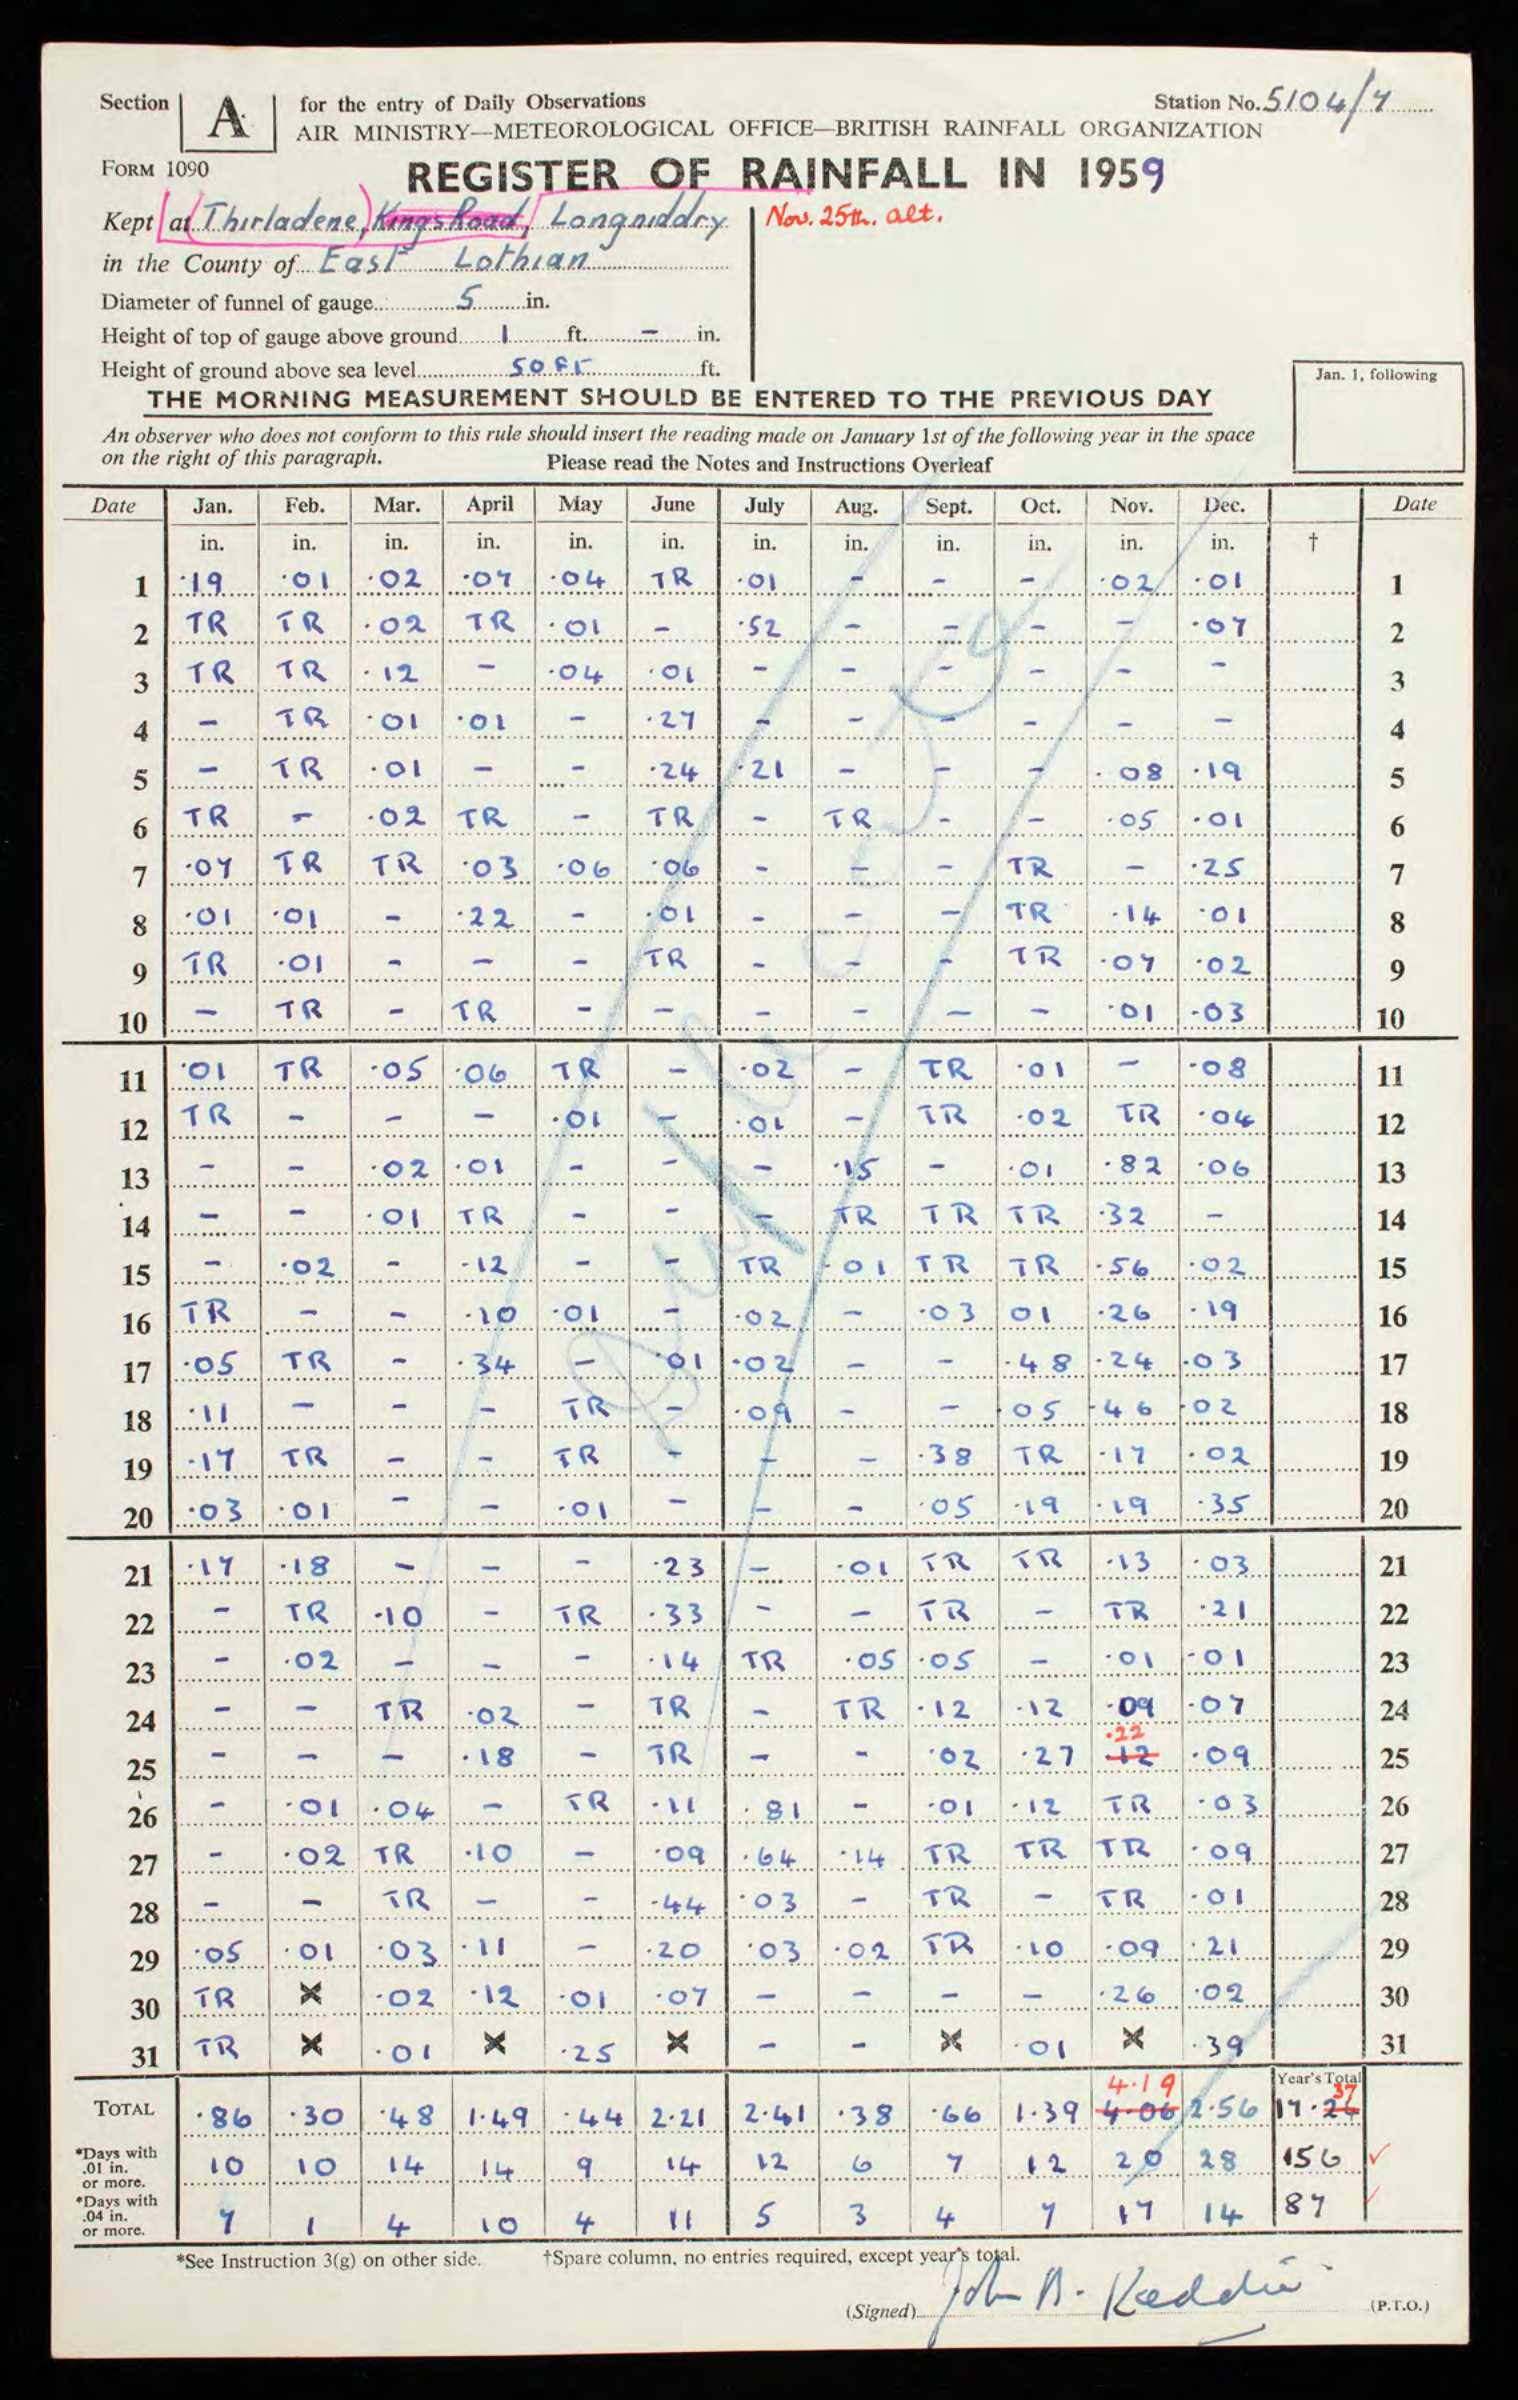 Section A for the entry of Daily Observations Station No. 5104/7
AIR MINISTRY—METEOROLOGICAL OFFICE—BRITISH RAINFALL ORGANIZATION
FORM 1090 REGISTER OF RAINFALL IN 1959
Kept at Thirladene, Kings Road, Longniddry Nov. 25th. alt.
in the County of East Lothian
Diameter of funnel of gauge 5 in.
Height of top of gauge above ground 1 ft. — in.
Height of ground above sea level 50 Ft ft.
Jan. 1, following
THE MORNING MEASUREMENT SHOULD BE ENTERED TO THE PREVIOUS DAY
An observer who does not conform to this rule should insert the reading made on January 1st of the following year in the space
on the right of this paragraph. Please read the Notes and Instructions Overleaf
Date Jan. Feb. Mar. April May June July Aug. Sept. Oct. Nov. Dec. Date
in. in. in. in. in. in. in. in. in. in. in. in. †
1 .19 .01 .02 .07 .04 TR .01 - - - .02 .01 1
2 TR TR .02 TR .01 - .52 - - - - .07 2
3 TR TR .12 - .04 .01 - - - - - - 3
4 - TR .01 .01 - .27 - - - - - - 4
5 - TR .01 - - .24 .21 - - - .08 .19 5
6 TR - .02 TR - TR - TR - - .05 .01 6
7 .07 TR TR .03 .06 .06 - - - TR - .25 7
8 .01 .01 - .22 - .01 - - - TR .14 .01 8
9 TR .01 - - - TR - - - TR .07 .02 9
10 - TR - TR - - - - - - .01 .03 10
11 .01 TR .05 .06 TR - .02 - TR .01 - .08 11
12 TR - - - .01 - .01 - TR .02 TR .04 12
13 - - .02 .01 - - - .15 - .01 .82 .06 13
14 - - .01 TR - - - TR TR TR .32 - 14
15 - .02 - .12 - - TR .01 TR TR .56 .02 15
16 TR - - .10 .01 - .02 - .03 01 .26 .19 16
17 .05 TR - .34 - .01 .02 - - .48 .24 .03 17
18 .11 - - - TR - .09 - - .05 .46 .02 18
19 .17 TR - - TR - - - .38 TR .17 .02 19
20 .03 .01 - - .01 - - - .05 .19 .19 .35 20
21 .17 .18 - - - .23 - .01 TR TR .13 .03 21
22 - TR .10 - TR .33 - - TR - TR .21 22
23 - .02 - - - .14 TR .05 .05 - .01 .01 23
24 - - TR .02 - TR - TR .12 .12 .09 .07 24
.22
25 - - - .18 - TR - - .02 .27 .12 .09 25
26 - .01 .04 - TR .11 .81 - .01 .12 TR .03 26
27 - .02 TR .10 - .09 .64 .14 TR TR TR .09 27
28 - - TR - - .44 .03 - TR - TR .01 28
29 .05 .01 .03 .11 - .20 .03 .02 TR .10 .09 .21 29
30 TR X .02 .12 .01 .07 - - - - .26 .02 30
31 TR X .01 X .25 X - - X .01 X .39 31
4.19 Year's Total
37
TOTAL .86 .30 .48 1.49 .44 2.21 2.41 .38 .66 1.39 4.06 2.56 17.26
*Days with .01 in. or more. 10 10 14 14 9 14 12 6 7 12 20 28 156 ✓
*Days with .04 in. or more. 7 1 4 10 4 11 5 3 4 7 17 14 87 ✓
*See Instruction 3(g) on other side. †Spare column, no entries required, except year's total.
(Signed) John Keddie (P.T.O.)